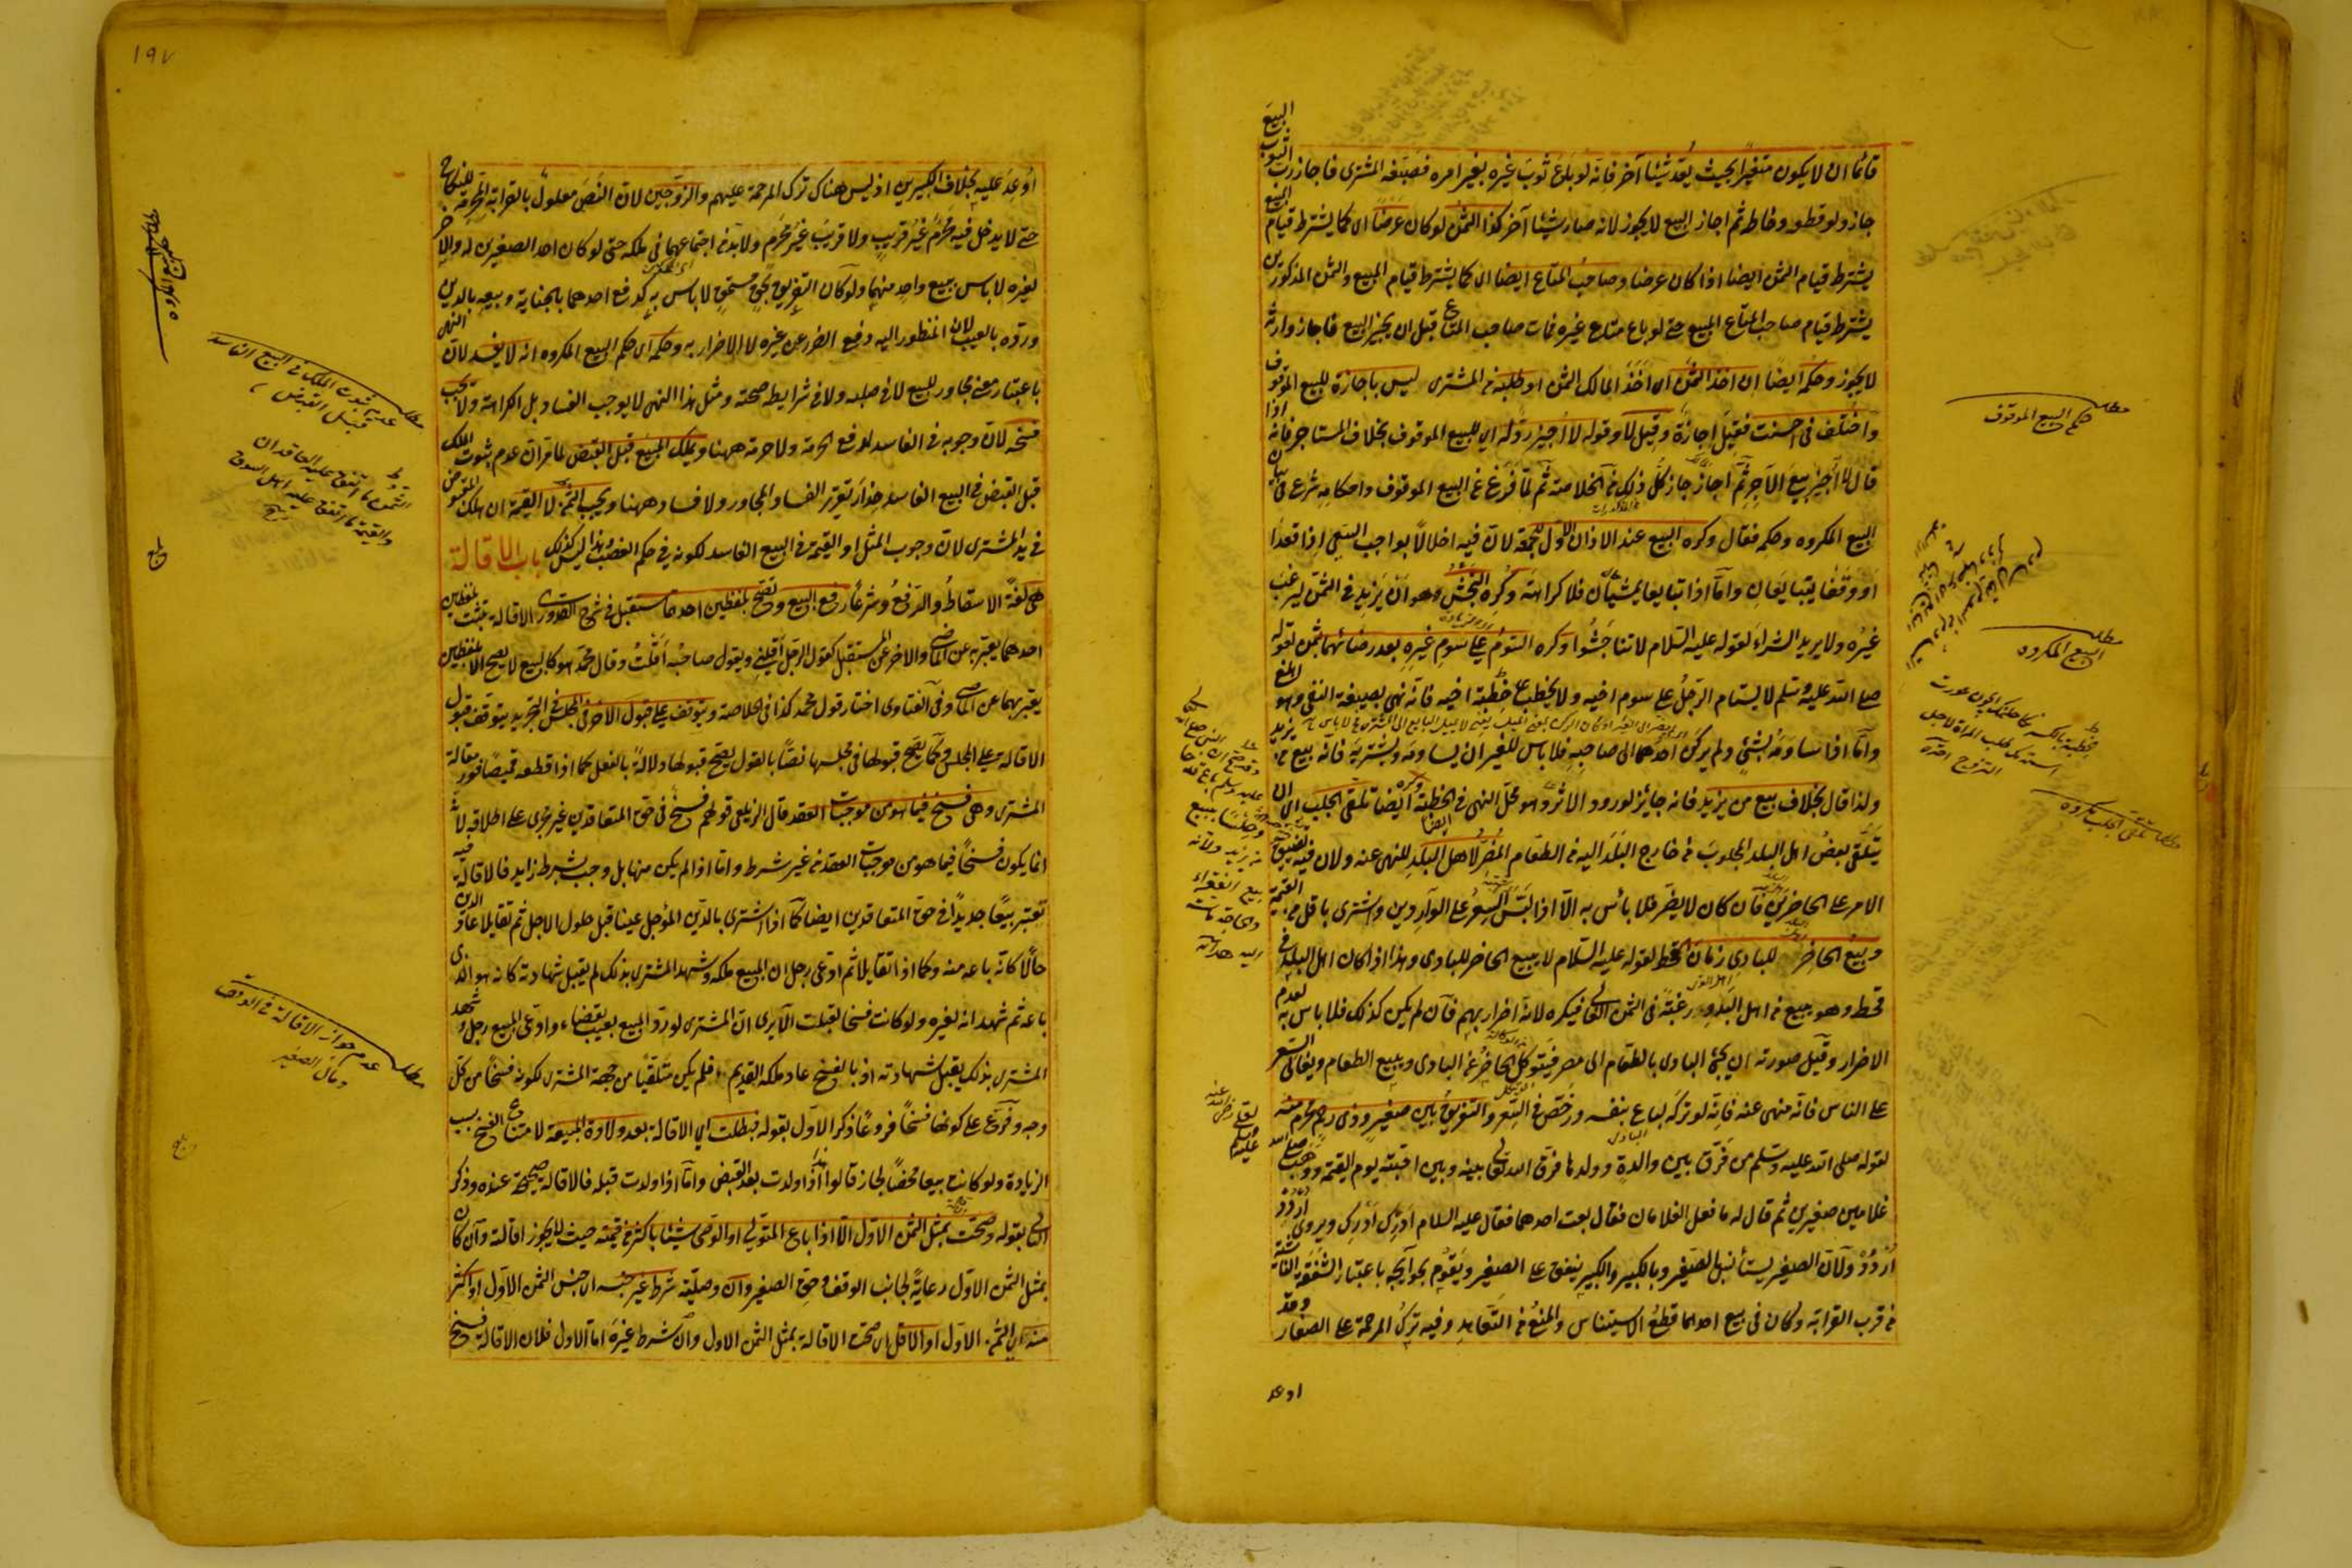 البيع
قائما ان لا يكون متغيرا بحيث يعد شيئا آخر فانه لو باع ثوب غيره بغير امره فصبغه المشترى فاجاز رب الثوب البيع
جاز ولو قطعه وخاطه ثم اجاز البيع لا يجوز لانه صار شيئا آخر كذا الثمن لو كان عرضا اى كما يشترط قيام المبيع
يشترط قيام الثمن ايضا اذا كان عرضا وصاحب المتاع ايضا اى كما يشترط قيام المبيع والثمن المذكورين
يشترط قيام صاحب المتاع المبيع حتى لو باع متاع غيره فمات صاحب المتاع قبل ان يجيز البيع فاجاز وارثه
لا يجوز وحكمه ايضا ان اخذ الثمن اى اخذ المالك الثمن او طلبه من المشترى ليس باجازة للبيع الموقوف
واختلف فى احسنت فقيل اجازة وقيل لا وقوله لا اجيز رد له اى للبيع الموقوف بخلاف المستاجر فانه اذا
قال لا اجيز بيع الآجر ثم اجاز جاز كل ذلك فى الخلاصة ثم لما فرغ عن البيع الموقوف واحكامه شرع فى بيان
البيع المكروه وحكمه فقال وكره البيع عند الاذان الاول للجمعة لان فيه اخلالا بواجب السعى اذا قعدا
او وقفا يتبايعان واما اذا تبايعا يمشيان فلا كراهة وكره النجش وهو ان يزيد فى الثمن ليرغب
غيره ولا يريد الشراء لقوله عليه السلام لا تناجشوا وكره السوم على سوم غيره بعد رضائهما بثمن لقوله
صلى الله عليه وسلم لا يستام الرجل على سوم اخيه ولا يخطب على خطبة اخيه فانه نهى بصيغة النفى وهو ابلغ
واما اذا ساومه بشئ ولم يركن احدهما الى صاحبه فلا باس للغير ان يساومه ويشتريه فانه بيع من يزيد
ولذا قال بخلاف بيع من يزيد فانه جايز لورود الاثر وهو محل النهى فى الخطبة ايضا وكره تلقى الجلب اى ان
يتلقى بعض اهل البلد المجلوب من خارج البلد اليه من الطعام المضر لاهل البلد للنهى عنه ولان فيه تضييق
الامر على الحاضرين فان كان لا يضر فلا بأس به الا اذا لبس السعر على الواردين واشترى باقل من القيمة
وبيع الحاضر للبادى زمان القحط لقوله عليه السلام لا يبيع الحاضر للبادى وهذا اذا كان اهل البلد فى
قحط وهو يبيع من اهل البدو رغبة فى الثمن الغالى فيكره لانه اضرار بهم فان لم يكن كذلك فلا باس به لعدم
الاضرار وقيل صورته ان يجئ البادى بالطعام الى مصر فيتوكل الحاضر عن البادى ويبيع الطعام ويغالى السعر
على الناس فانه منهى عنه فانه لو تركه لباع بنفسه ورخص فى السعر والتفريق بين صغير وذى رحم محرم منه
لقوله صلى الله عليه وسلم من فرق بين والدة وولدها فرق الله تعالى بينه وبين احبته يوم القيمة ووهب صلى الله
غلامين صغيرين ثم قال له ما فعل الغلامان فقال بعت احدهما فقال عليه السلام ادرك ادرك ويروى اردد
اردد ولان الصغير يستأنس بالصغير وبالكبير والكبير ينفق على الصغير ويقوم بحوايجه باعتبار الشفقة الناشئة
من قرب القرابة وكان فى بيع احدهما قطع الاستيناس والمنع من التعاهد وفيه ترك المرحمة على الصغار وقد
اوعد
مطلب
حكم البيع الموقوف
مطلب
البيع المكروه
مطلب تلقى الجلب مكروه
١٩٧
اوعد عليه بخلاف الكبيرين اذ ليس هناك ترك المرحمة عليهم والزوجين لان النص معلول بالقرابة المحرمة للنكاح
حتى لا يدخل فيه محرم غير قريب ولا قريب غير محرم ولا بد من اجتماعهما فى ملكه حتى لو كان احد الصغيرين له والآخر
لغيره لا باس ببيع واحد منهما ولو كان التفريق بحق مستحق لا باس به كدفع احدهما بالجناية وبيعه بالدين
ورده بالعيب لان المنظور اليه دفع الضرر عن غيره لا الاضرار به وحكمه اى حكم البيع المكروه انه لا يفسد لان النهى
باعتبار معنى مجاور للبيع لا فى صلبه ولا فى شرايط صحته ومثل هذا النهى لا يوجب الفساد بل الكراهة ولا يجب
فسخه لان وجوبه فى الفاسد لدفع الحرمة ولا حرمة ههنا ويملك المبيع قبل القبض لما مر ان عدم ثبوت الملك
قبل القبض فى البيع الفاسد حذار تقرر الفساد المجاور ولا فساد ههنا ويجب الثمن لا القيمة ان هلك المقبوض
فى يد المشترى لان وجوب المثل او القيمة فى البيع الفاسد لكونه فى حكم الغصب وهذا ليس كذلك باب الاقالة
هى لغة الاسقاط والرفع وشرعا رفع البيع وتصح بلفظين احدهما مستقبل فى شرح القدورى الاقالة تثبت بلفظين
احدهما يعتبر به عن الماضى والاخر عن المستقبل كقول الرجل اقلنى ويقول صاحبه اقلت وقال محمد هو كالبيع لا يصح الا بلفظين
يعتبر بهما عن الماضى وفى الفتاوى اختار قول محمد كذا فى الخلاصة وتتوقف على قبول الآخر فى المجلس فى التجريد يتوقف قبول
الاقالة على المجلس وكما يصح قبولها فى مجلسها نصا بالقول يصح قبولها دلالة بالفعل كما اذا قطعه قميصا فور مقالة
المشترى وهى فسخ فيما هو من موجبات العقد قال الزيلعى قولهم فسخ فى حق المتعاقدين غير مجرى على اطلاقه لانه
انما يكون فسخا فيما هو من موجبات العقد من غير شرط واما اذا لم يكن منها بل وجب بشرط زايد فالاقالة فيه
تعتبر بيعا جديدا فى حق المتعاقدين ايضا كما اذا اشترى بالدين المؤجل عينا قبل حلول الاجل ثم تقايلا عاد الدين
حالا كانه باعه منه وكما اذا تقايلا ثم ادعى رجل ان المبيع ملكه وشهد المشترى بذلك لم يقبل شهادته كانه هو الذى
باعه ثم شهد انه لغيره ولو كانت فسخا لقبلت الا يرى ان المشترى لو رد المبيع بعيب بقضاء وادعى المبيع رجل وشهد
المشترى بذلك يقبل شهادته اذ بالفسخ عاد ملكه القديم فلم يكن متلقيا من جهة المشترى لكونه فسخا من كل
وجه وفرع على كونها فسخا فروعا ذكر الاول بقوله فبطلت اى الاقالة بعد ولادة المبيعة لامتناع الفسخ بسبب
الزيادة ولو كانت بيعا محضا لجاز قالوا هذا اذا ولدت بعد القبض واما اذا ولدت قبله فالاقالة صحيحة عنده وذكر
الثانى بقوله وصحت بمثل الثمن الاول الا اذا باع المتولى او الوصى شيئا باكثر من قيمته حيث لا يجوز اقالته وان كان
بمثل الثمن الاول رعاية لجانب الوقف وحق الصغير وان وصلية شرط غير جنسه اى جنس الثمن الاول او اكثر
منه اى الثمن الاول او الاقل اى صحت الاقالة بمثل الثمن الاول وان شرط غيره اما الاول فلان الاقالة فسخ
مطلب
عدم ثبوت الملك فى البيع الفاسد
قبل القبض
الثمن ما اتفق عليه العاقدان
والقيمة ما اتفق عليه اهل السوق
مطلب
عدم جواز الاقالة فى الوقف
ومال الصغير